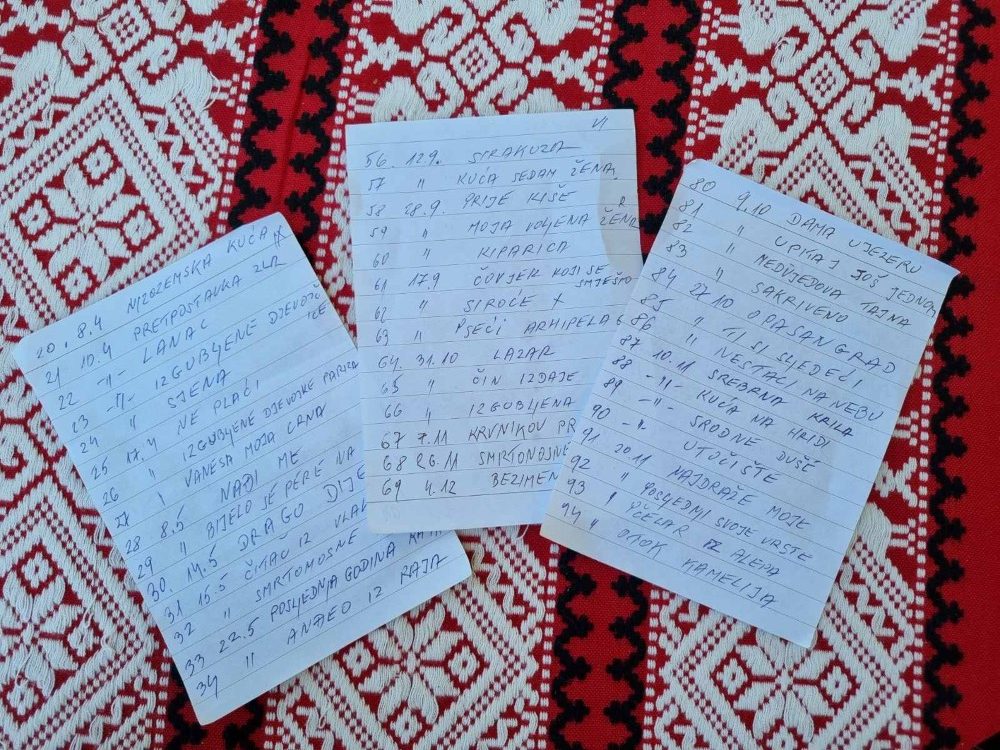 20. 8.4 NIZOZEMSKA KUĆA
21 10.4 PRETPOSTAVKA ZLA
22 -"- LANAC
23 -"- IZGUBLJENE DJEVOJČ
ICE
24 " SJENA
25 17.4 NE PLAČI
26 " IZGUBLJENE DJEVOJKE PARIZA
27 " VANESA MOJA CRNA
28 8.5 NAĐI ME
29 " BIJELO SE PERE NA
30. 14.5 DRAGO DIJE
31 15.5 ČITAČ IZ VLAK
32 " SMRTONOSNE
33 22.5 POSLJEDNJA GODINA
34 " ANĐEO IZ RAJA
VI
56. 12.9. SIRAKUZA
57 " KUĆA SEDAM ŽENA
58 28.9. PRIJE KIŠE
59 " MOJA VOLJENA ŽENA
60 " KIPARICA
61 17.9 ČOVJEK KOJI SE
SMJEŠIO
62 " SIROČE X
63 " PSEĆI ARHIPELAG
64. 31.10 LAZAR
65 " ČIN IZDAJE
66 " IZGUBLJENA
67 7.11 KRVNIKOV PR
68 26.11 SMRTONOSNE
69 4.12 BEZIMEN
80 9.10 DAMA U JEZERU
81 " UPITAJ JOŠ JEDNOM
82 " MEDVJEDOVA TAJNA
83 " SAKRIVENO
84 27.10 OPASAN GRAD
85 " TI SI SLJEDEĆI
86 " NESTALI NA NEBU
87 10.11 SREBRNA KRILA
88 -"- KUĆA NA HRIDI
89 -"- SRODNE DUŠE
90 -"- UTOČIŠTE
91 20.11 NAJDRAŽE MOJE
92 " POSLJEDNJI SVOJE VRSTE
93 " PČELAR IZ ALEPA
94 " OTOK KAMELIJA